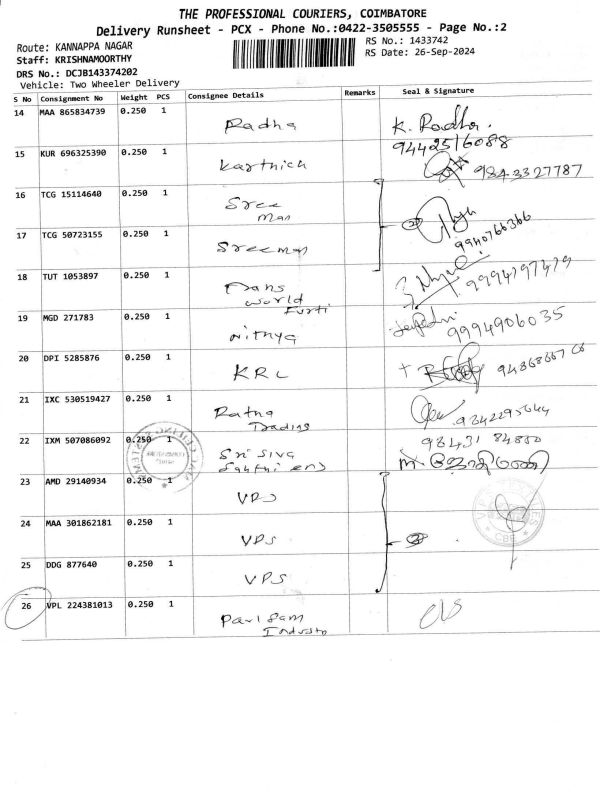 THE PROFESSIONAL COURIERS, COIMBATORE
Delivery Runsheet - PCX - Phone No.:0422-3505555 - Page No.:2
Route: KANNAPPA NAGAR
RS No.: 1433742
Staff: KRISHNAMOORTHY
RS Date: 26-Sep-2024
DRS No.: DCJB143374202
Vehicle: Two Wheeler Delivery
S No Consignment No Weight PCS Consignee Details Remarks Seal & Signature
14 MAA 865834739 0.250 1 Radha K. Radha.
9442516088
15 KUR 696325390 0.250 1 Karthick 984 3327787
16 TCG 15114640 0.250 1 Sree
man
9940766366
17 TCG 50723155 0.250 1 Sreeman
18 TUT 1053897 0.250 1 Trans
world
Furti
19 MGD 271783 0.250 1 Nithya 9994906035
20 DPI 5285876 0.250 1 KRC
21 IXC 530519427 0.250 1 Ratna
Trading
22 IXM 507086092 0.250 1 Sri Siva
98431 84880
23 AMD 29140934 0.250 1 VPS
24 MAA 301862181 0.250 1 VPS
CBE
25 DDG 877640 0.250 1 VPS
26 VPL 224381013 0.250 1